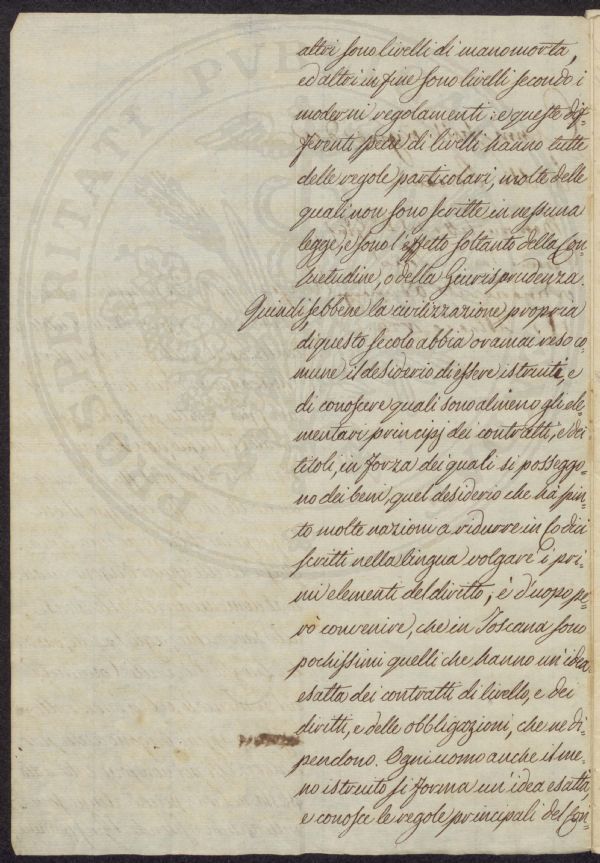 altri sono livelli di manomorta,
ed altri in fine sono livelli secondo i
moderni regolamenti: e queste dif-
ferenti specie di livelli hanno tutte
delle regole particolari, molte delle
quali non sono scritte in nessuna
legge, e sono l'effetto soltanto della Con-
suetudine, o della Giurisprudenza.
Quindi sebbene la civilizzazione propria
di questo secolo abbia oramai reso co-
mune il desiderio di essere istruiti, e
di conoscere quali sono almeno gli ele-
mentari principj dei contratti, e dei
titoli, in forza dei quali si posseggo-
no dei beni, quel desiderio che ha spin-
to molte nazioni a ridurre in Codici
scritti nella lingua volgare i pri-
mi elementi del diritto; è d'uopo pe-
rò convenire, che in Toscana sono
pochissimi quelli che hanno un'idea
esatta dei contratti di livello, e dei
diritti, e delle obbligazioni, che ne di-
pendono. Ogni uomo anche il me-
no istruito si forma un'idea esatta,
e conosce le regole principali del Con-
PROSPERITATI PVB